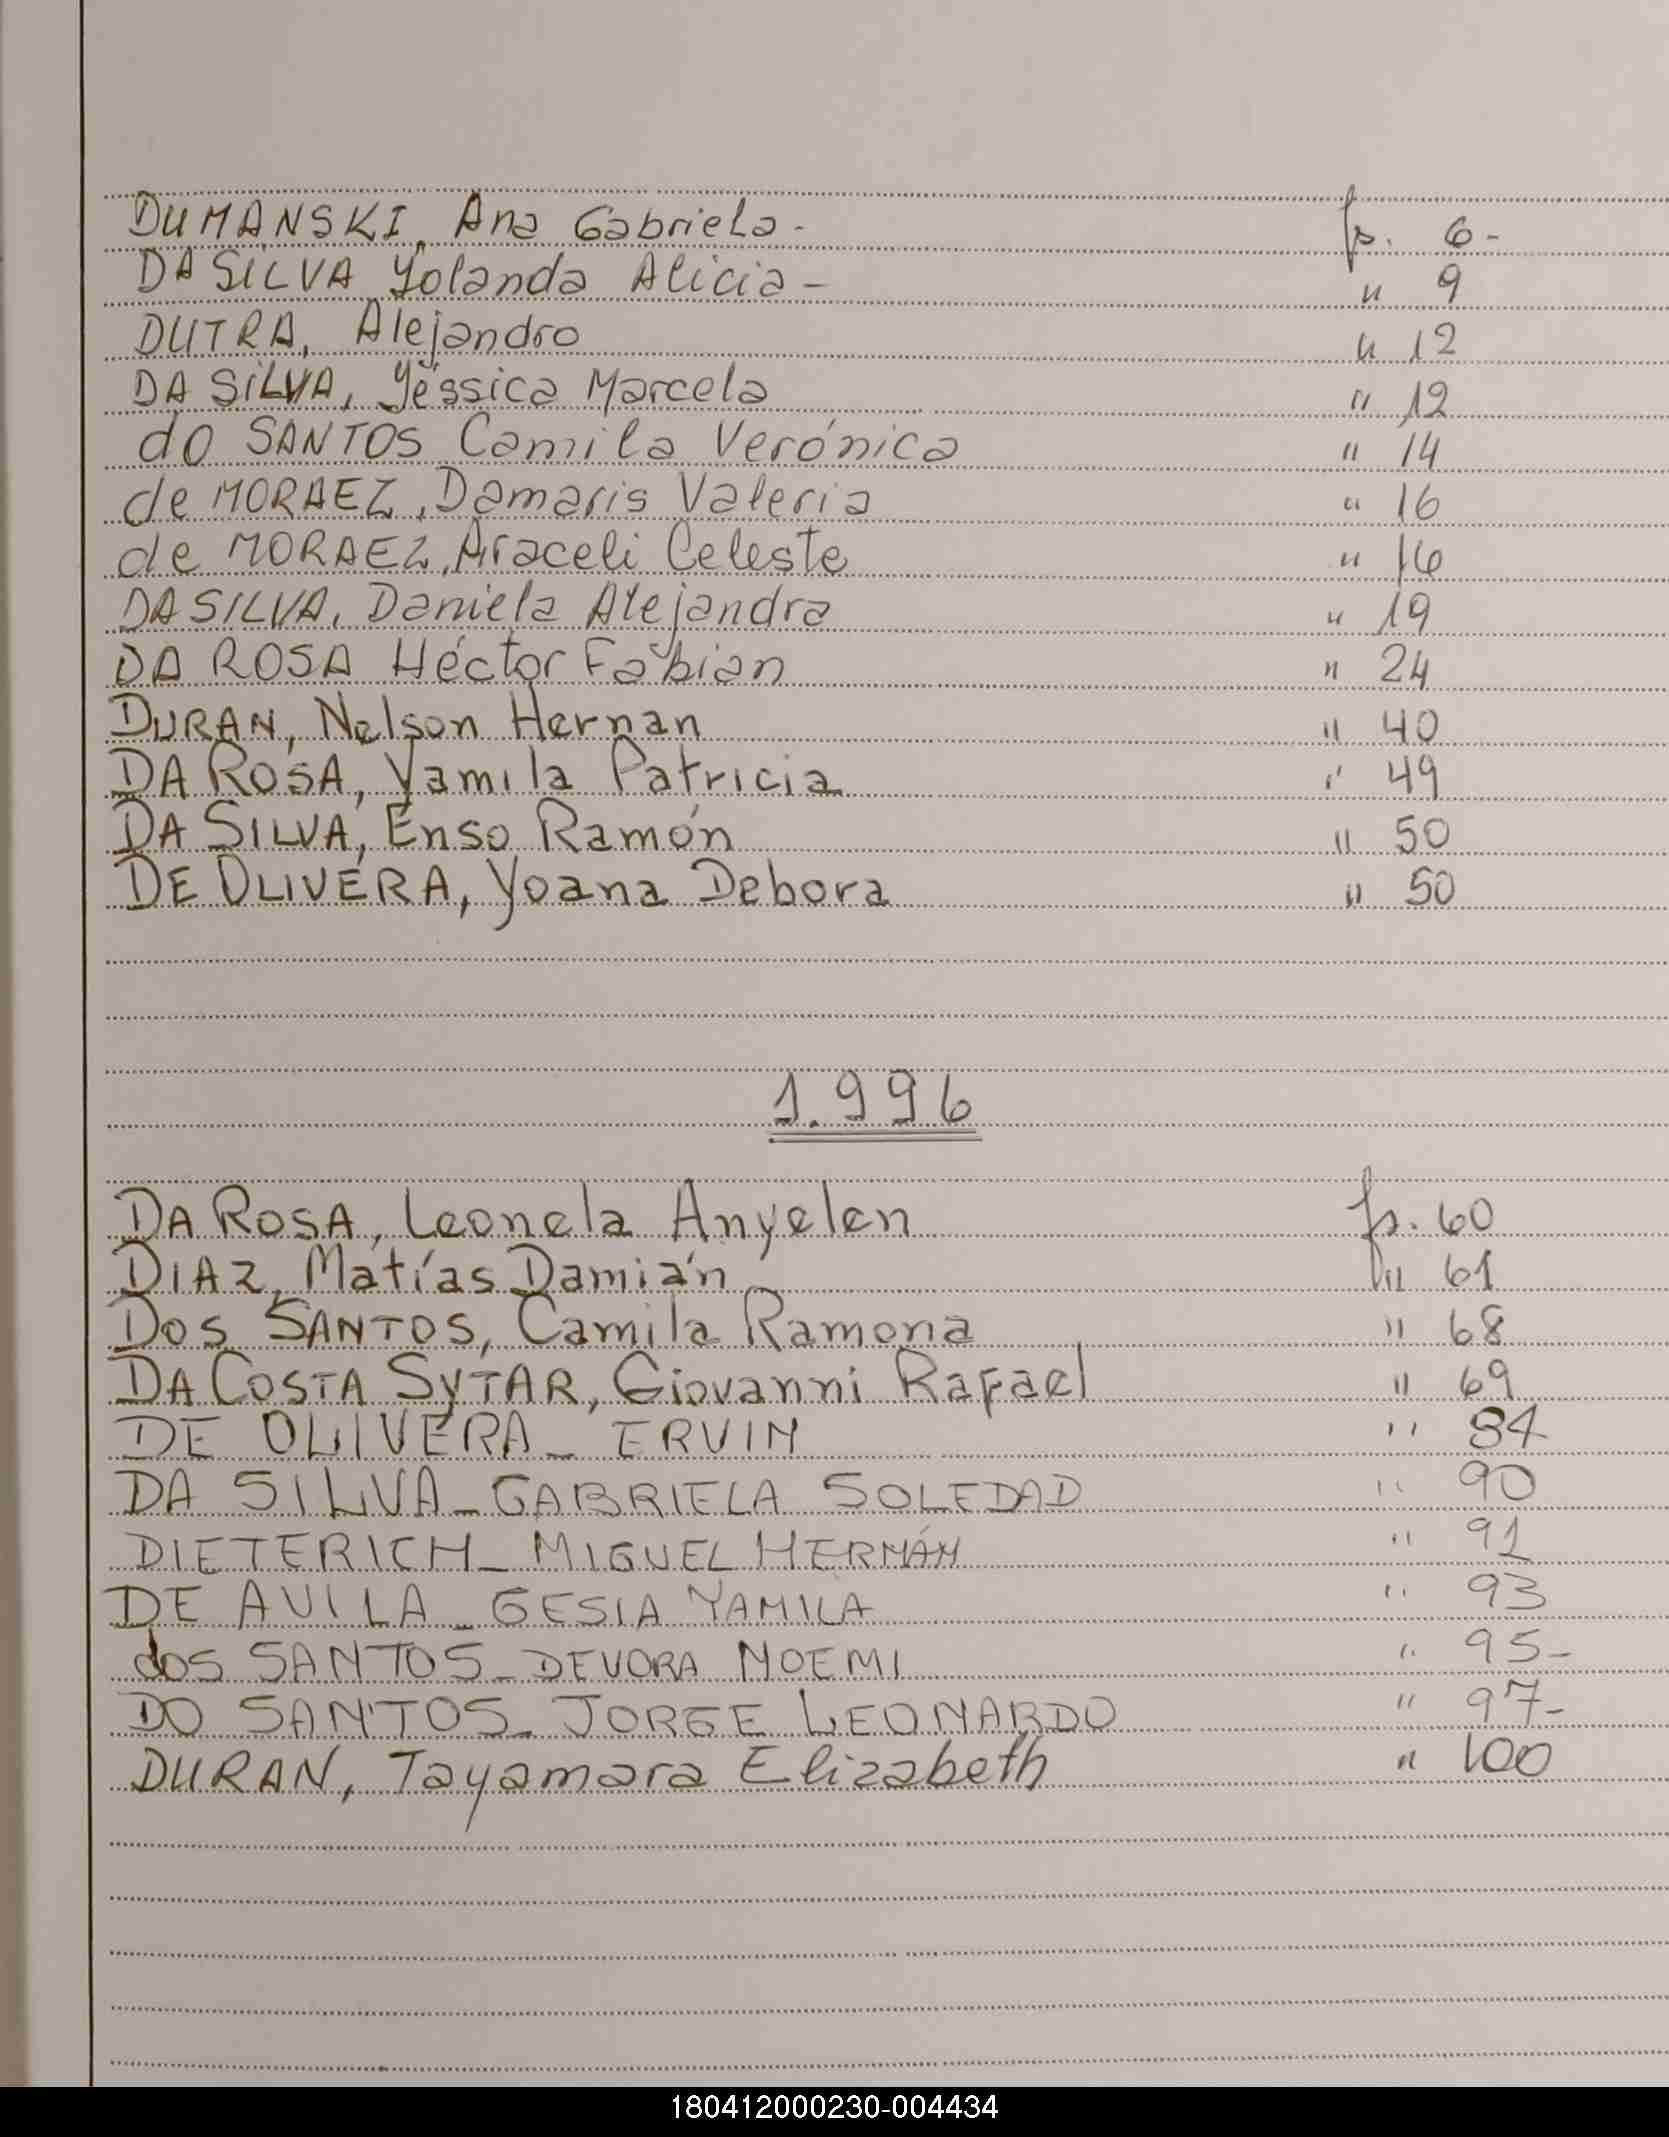 DUMANSKI, Ana Gabriela - fs. 6-
DA SILVA Yolanda Alicia - " 9
DUTRA, Alejandro " 12
DA SILVA, Yéssica Marcela " 12
do SANTOS Camila Verónica " 14
de MORAEZ, Damaris Valeria " 16
de MORAEZ, Araceli Celeste " 16
DA SILVA, Daniela Alejandra " 19
DA ROSA Héctor Fabian " 24
DURAN, Nelson Hernan " 40
DA ROSA, Yamila Patricia " 49
DA SILVA, Enso Ramón " 50
DE OLIVERA, Yoana Debora " 50
1.996
DA ROSA, Leonela Anyelen fs. 60
DIAZ, Matías Damián " 61
DOS SANTOS, Camila Ramona " 68
DA COSTA SYTAR, Giovanni Rafael " 69
DE OLIVERA_ ERVIN " 84
DA SILVA_ GABRIELA SOLEDAD " 90
DIETERICH_ MIGUEL HERNÁN " 91
DE AVILA_ GESIA YAMILA " 93
dos SANTOS_ DEVORA NOEMI " 95-
DO SANTOS_ JORGE LEONARDO " 97-
DURAN, Tayamara Elizabeth " 100
180412000230-004434